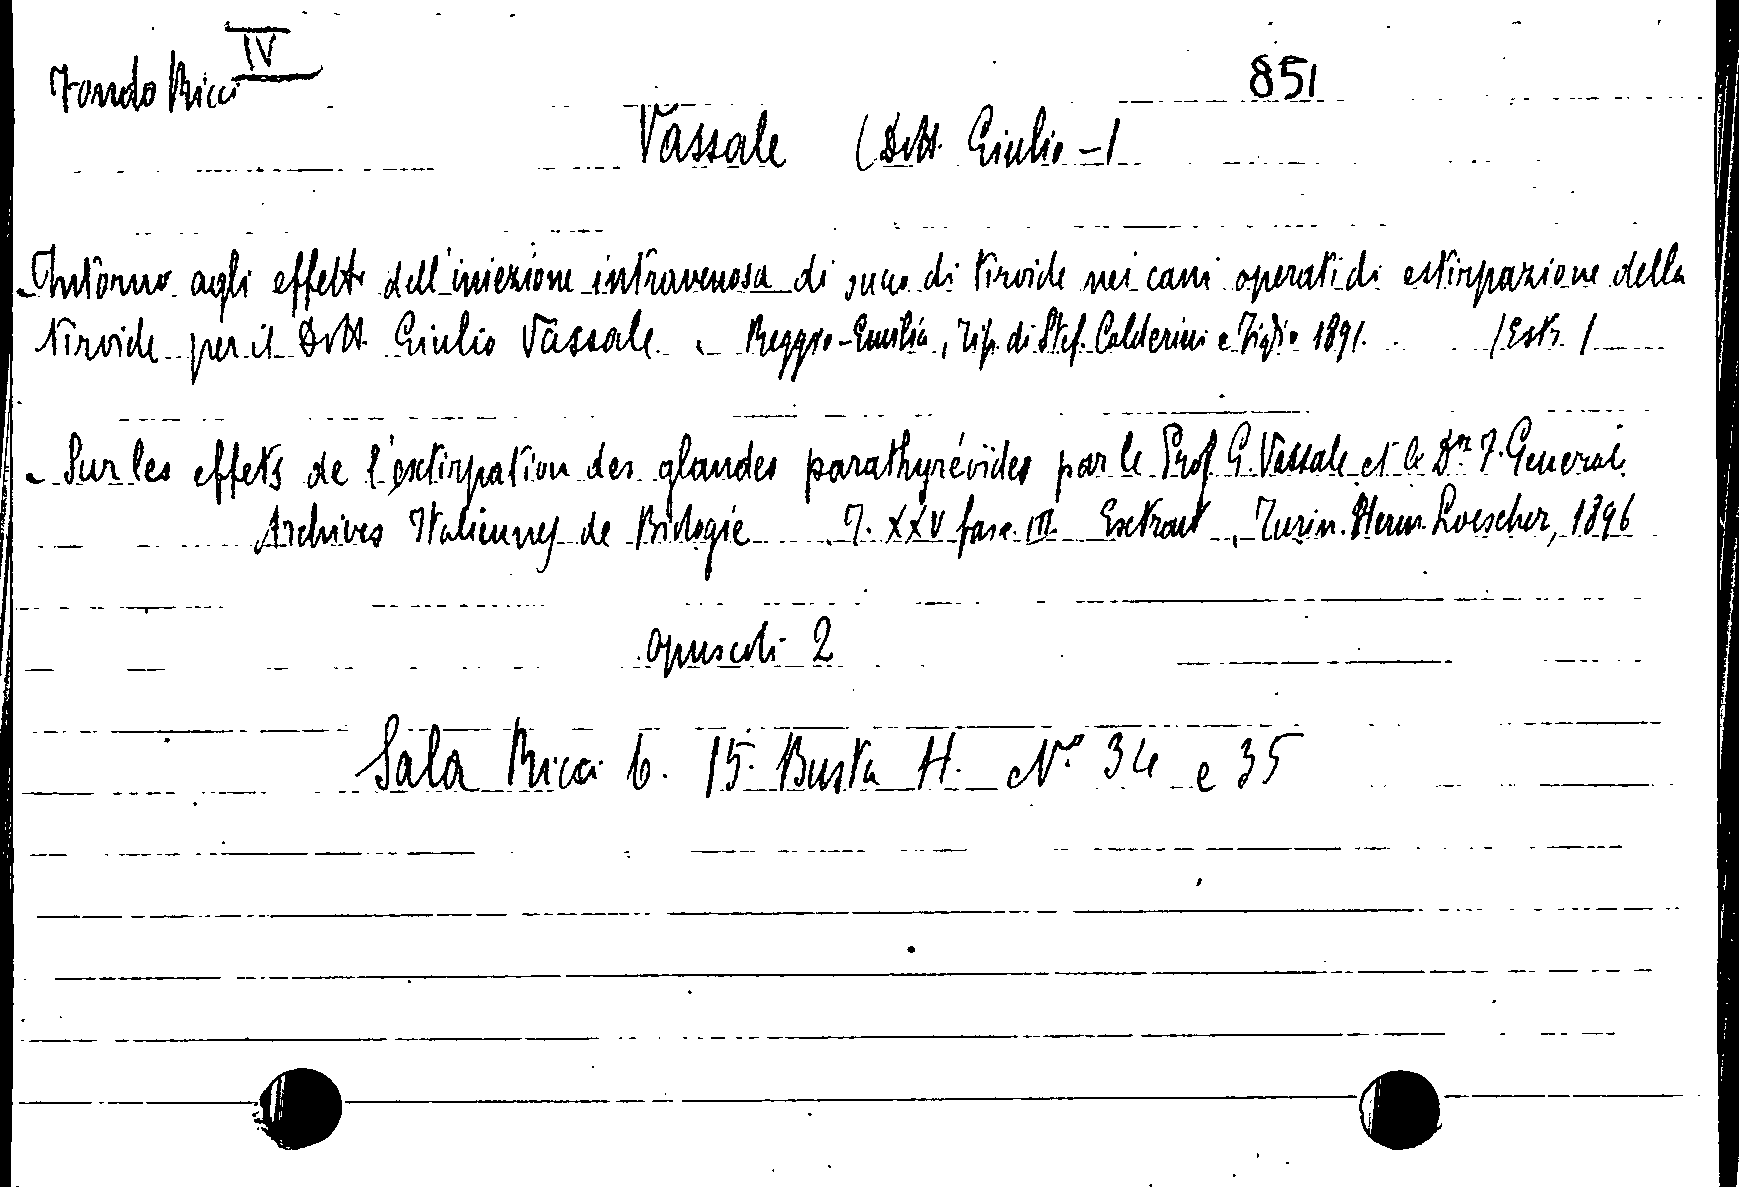 IV
Fondo Ricci
851
Vassale (Dott. Giulio -)
- Intorno agli effetti dell'iniezione intravenosa di succo di tiroide nei cani operati di estirpazione della
tiroide per il Dott. Giulio Vassale. - Reggio-Emilia, Tip. di Stef. Calderini e Figlio 1891. (Estr.)
- Sur les effets de l'extirpation des glandes parathyréoïdes par le Prof. G. Vassale et le Dr. F. Generali
Archives Italiennes de Biologie T. XXV fasc. III. Extrait, Turin. Herm. Loescher, 1896
opuscoli 2
Sala Ricci b. 15. Busta H. N.º 34 e 35